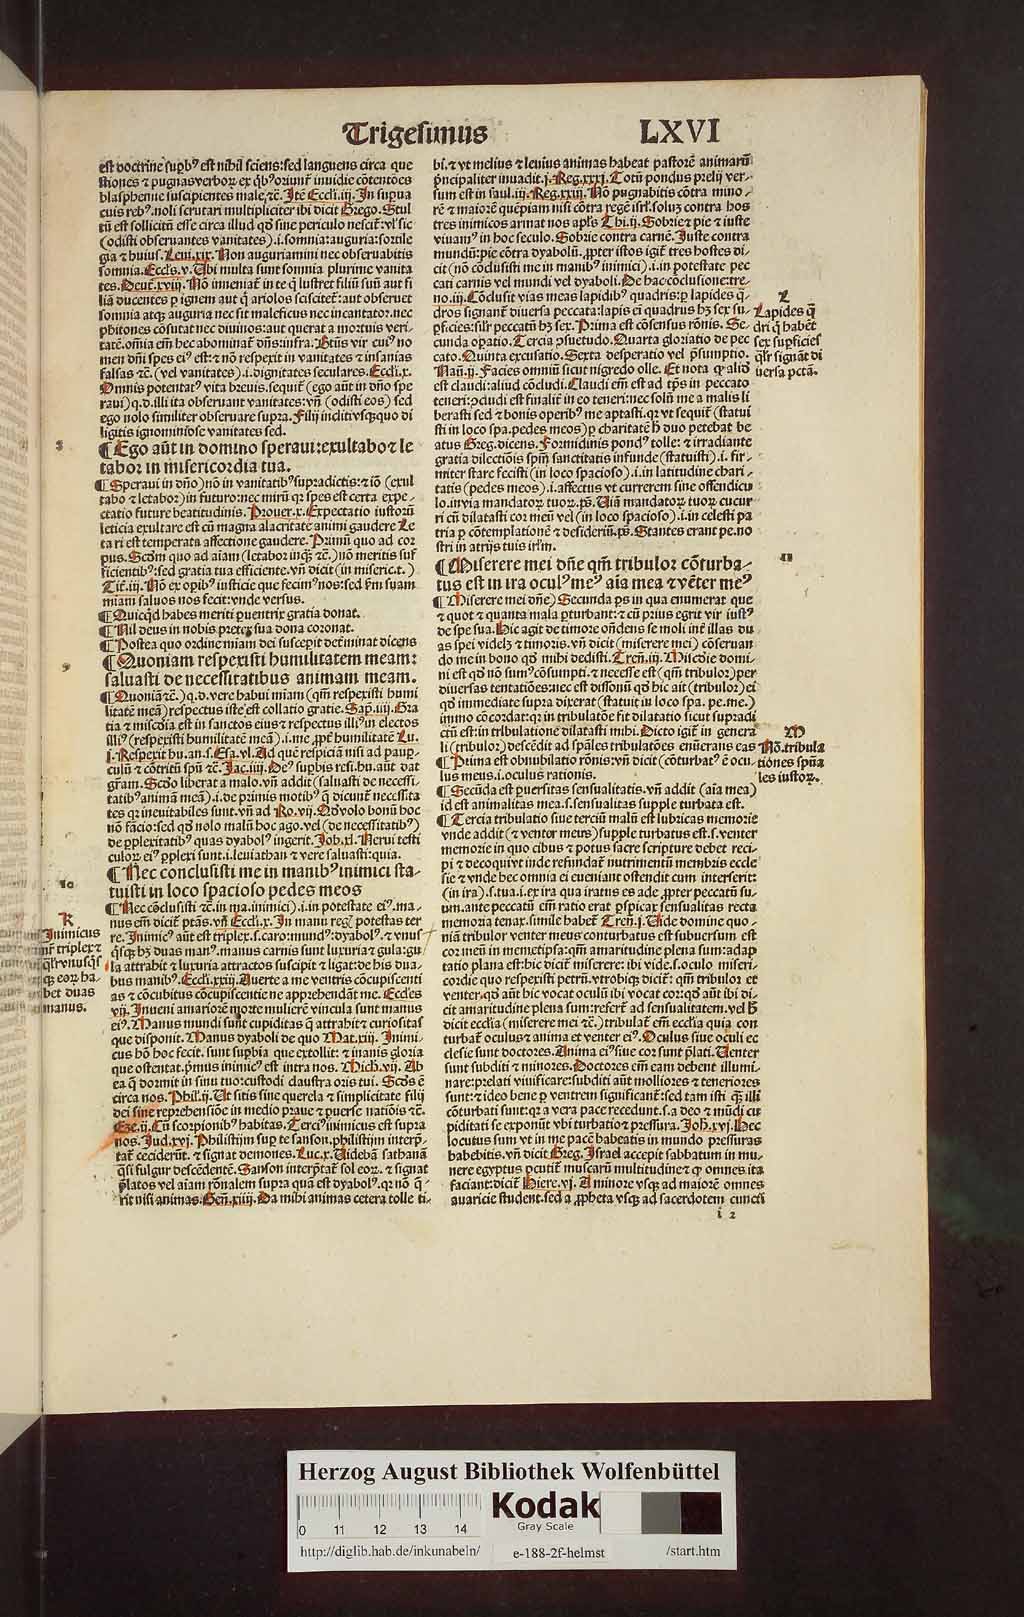 Trigesimus
LXVI
est doctrine supbꝰ est nihil sciens: sed languens circa que
stiones ⁊ pugnas verboꝝ ex qͥbꝰ oriunt᷑ inuidie cōtentōes
blasphemie suscipientes male. ⁊c̄. Itē Eccli.iij. In supua
cuis rebꝰ. noli scrutari multipliciter ibi dicit Grego. Stul
tū est sollicitū esse circa illud qd̓ sine periculo nescit᷑: vl̓ sic
(odisti obseruantes vanitates) .i. somnia: auguria: sortile
gia ⁊ huius. Leui.xix. Non auguriamini nec obseruabitis
somnia. Eccl̓s.v. Ubi multa sunt somnia plurime vanita
tes. Deut᷑.xviij. Nō inueniat᷑ in te q̄ lustret filiū suū aut fi
liā ducentes ꝑ ignem aut q̄ ariolos sciscitet᷑: aut obseruet
somnia atqꝫ auguria nec sit maleficus nec incantator. nec
phitones cōsulat nec diuinos: aut querat a mortuis veri
tatē. omīa em̄ hec abominat᷑ dn̄s: infra. Btūs vir cuiꝰ no
men dn̄i spes eiꝰ est: ⁊ nō respexit in vanitates ⁊ insanias
falsas ⁊c̄. (vel vanitates) .i. dignitates seculares. Eccli.x.
Omnis potentatꝰ vita breuis. sequit᷑ (ego aūt in dn̄o spe
raui) q.d. illi ita obseruant vanitates: vn̄ (odisti eos) sed
ego nolo similiter obseruare supra. Filij incliti vsqꝫ quo di
ligitis ignominiose vanitates sed.
¶ Ego aūt in domino speraui: exultabo ⁊ le
tabor in misericordia tua.
¶ Speraui in dn̄o) nō in vanitatibꝰ supradictis: ⁊ iō (exul
tabo ⁊ letabor) in futuro: nec mirū qꝛ spes est certa expe-
ctatio future beatitudinis. Prouer.x. Expectatio iustorū
leticia exultare est cū magna alacritate animi gaudere Le
ta ri est temperata affectione gaudere. Primū quo ad cor
pus. Scd̓m quo ad aīam (letabor inqꝫ ⁊c̄.) nō meritis suf
ficientibꝰ: sed gratia tua efficiente. vn̄ dicit (in misericꝫ.t.)
Tit᷑.iij. Nō ex opibꝰ iusticie que fecimꝰ nos: sed ẜm suam
miam saluos nos fecit: vnde versus.
¶ Quicqͥd habes meriti p̄uentrix gratia donat.
¶ Nil deus in nobis preter sua dona coronat.
¶ Postea quo ordine miam dei suscepit det᷑minat dicens
¶ Quoniam respexisti humilitatem meam:
saluasti de necessitatibus animam meam.
¶ Quoniā ⁊c̄.) q.d. vere habui miam (qm̄ respexisti humi
litatē meā) respectus iste est collatio gratie. Sap̄.iiij. Gra
tia ⁊ miscd̓ia est in sanctos eius ⁊ respectus illiꝰ in electos
illiꝰ (respexisti humilitatē meā) .i. me ꝓpt᷑ humilitatē Lu.
j. Respexit hu. an. s. Esa.vl. Ad quē respiciā nisi ad paup̄-
culū ⁊ cōtritū spū ⁊c̄. Jac.iiij. Deꝰ supbis resi. hu. aūt dat
gr̄am. Scd̓o liberat a malo. vn̄ addit (saluasti de necessi-
tatibꝰ animā meā) .i. de primis motibꝰ q̄ dicunt᷑ necessita
tes qꝛ ineuitabiles sunt. vn̄ ad Ro.vij. Qd̓ volo bonū hoc
nō facio: sed qd̓ nolo malū hoc ago. vel (de necessitatibꝰ)
de ꝑplexitatibꝰ quas dyabolꝰ ingerit. Job.xl. Nerui testi
culoꝝ eiꝰ ꝑplexi sunt .i. leuiathan ⁊ vere saluasti: quia.
¶ Nec conclusisti me in manibꝰ inimici sta-
tuisti in loco spacioso pedes meos
¶ Nec cōclusisti ⁊c̄. in ma. inimici) .i. in potestate eiꝰ. ma-
nus em̄ dicit᷑ ptās. vn̄ Eccli.x. In manu regꝭ potestas ter
re. Inimicꝰ aūt est triplex. s. caro: mundꝰ: dyabolꝰ. ⁊ vnusꝰ
qͥsqꝫ hꝫ duas manꝰ. manus carnis sunt luxuria ⁊ gula: gu
la attrahit ⁊ luxuria attractos suscipit ⁊ ligat: de his dua-
bus manibꝰ. Eccli.xxiij. Auerte a me ventris cōcupiscenti
as ⁊ cōcubitus cōcupiscentie ne apprehendāt me. Eccl̓es
vij. Inueni amariorē morte mulierē vincula sunt manus
eiꝰ. Manus mundi sunt cupiditas q̄ attrahit ⁊ curiositas
que disponit. Manus dyaboli de quo Mat.xiij. Inimi-
cus hō hoc fecit. sunt supbia que extollit: ⁊ inanis gloria
que ostentat. pͥmus inimicꝰ est intra nos. Mich̓.vij. Ab
ea q̄ dormit in sinu tuo: custodi claustra oris tui. Scd̓s ē
circa nos. Phil̓.ij. Ut sitis sine querela ⁊ simplicitate filij
dei sine reprehensiōe in medio praue ⁊ puerse natiōis ⁊c̄.
Eze.ij. Cū scorpionibꝰ habitas. Terciꝰ inimicus est supra
nos. Jud.xvj. Philistijm sup̄ te sanson. philistijm interp̄-
tat᷑ cecideri᷑t. ⁊ signat demones. Luc.x. Uidebā sathanā
q̄si fulgur descēdentē. Sanson interp̄tat᷑ sol eoꝝ. ⁊ signat
p̄latos vel aīam rōnalem supra quā est dyabolꝰ. qꝛ nō q̄-
rit nisi animas. Gen̄.xiiij. Da mihi animas cetera tolle ti-
bi. ⁊ vt melius ⁊ leuius animas habeat pastorē animarū
pͥncipaliter inuadit. j. Reg.xxxj. Totū pondus prelij ver-
sum est in saul. iij. Reg.xxij. Nō pugnabitis cōtra mino-
rē ⁊ maiorē quēpiam nisi cōtra regē isrl̓. soluꝫ contra hos
tres inimicos armat nos apl̓s Thi.ij. Sobrie ⁊ pie ⁊ iuste
viuamꝰ in hoc seculo. Sobrie contra carnē. Juste contra
mundū: pie cōtra dyabolū. ꝓpter istos igit᷑ tres hostes di-
cit (nō cōclusisti me in manibꝰ inimici) .i. in potestate pec
cati carnis vel mundi vel dyaboli. De hac cōclusione: tre-
no.iij. Cōclusit vias meas lapidibꝰ quadris: ꝑ lapides q̄-
dros signant᷑ diuersa peccata: lapis em̄ quadrus hꝫ sex su-
pficies: sil̓r peccatū hꝫ sex. Prima est cōsensus rōnis. Se-
cunda opatio. Tercia ꝓsuetudo. Quarta gloriatio de pec
cato. Quinta excusatio. Sexta desperatio vel p̄sumptio.
Naū.ij. Facies omniū sicut nigredo olle. Et nota qꝫ aliud
est claudi: aliud cōcludi. Claudi em̄ est ad tp̄s in peccato
teneri: ꝯcludi est finalit᷑ in eo teneri: nec solū me a malis li
berasti sed ⁊ bonis operibꝰ me aptasti. qꝛ vt sequit᷑ (statui
sti in loco spa. pedes meos) ꝑ charitatē h̓ duo petebat be
atus Greg. dicens. Formidinis pondꝰ tolle: ⁊ irradiante
gratia dilectiōis spm̄ sanctitatis infunde (statuisti) .i. fir-
miter stare fecisti (in loco spacioso) .i. in latitudine chari-
tatis (pedes meos) .i. affectus vt currerem sine offendicu
lo. in via mandatoꝝ tuoꝝ. ps̄. Uiā mandatoꝝ tuoꝝ cucur
ri cū dilatasti cor meū vel (in loco spacioso) .i. in celesti pa
tria ꝑ cōtemplationē ⁊ desideriū. ps̄. Stantes erant pe. no
stri in atrijs tuis irl̓m.
¶ Miserere mei dn̄e qm̄ tribulor cōturba-
tus est in ira oculꝰ meꝰ aīa mea ⁊ vēter meꝰ
¶ Miserere mei dn̄e) Secunda ps̄ in qua enumerat que
⁊ quot ⁊ quanta mala pturbant: ⁊ cū prius egrit vir iustꝰ
de spe sua. Hic agit de timore on̄dens se moli int᷑ illas du
as spei videlꝫ ⁊ timoris. vn̄ dicit (miserere mei) cōseruan
do me in bono qd̓ mihi dedisti. Tren̄.iij. Miscd̓ie domi-
ni est qd̓ nō sumꝰ cōsumpti. ⁊ necesse est (qm̄ tribulor) per
diuersas tentatiōes: nec est dissonū qd̓ hic ait (tribulor) ei
qd̓ immediate supra dixerat (statuit in loco spa. pe. me.)
immo cōcordat: qꝛ in tribulatōe fit dilatatio sicut supradi
ctū est: in tribulatione dilatasti mihi. Dicto igit᷑ in genera
li (tribulor:) descēdit ad sp̄ales tribulatōes enūerans eas
¶ Prima est obnubilatio rōnis: vn̄ dicit (cōturbatꝰ ē ocu
lus meus .i. oculus rationis.
¶ Secūda est puersitas sensualitatis. vn̄ addit (aīa mea)
id est animalitas mea. s. sensualitas supple turbata est.
¶ Tercia tribulatio siue terciū malū est lubricas memorie
vnde addit (⁊ ventor meus) supple turbatus est. s. venter
memorie in quo cibus ⁊ potus sacre scripture debet reci-
pi ⁊ decoqui vt inde refundat᷑ nutrimentū membris eccle
sie ⁊ vnde hec omnia ei eueniant ostendit cum interserit:
(in ira) .s. tua .i. ex ira qua iratus es ade ꝓpter peccatū su-
um. ante peccatū em̄ ratio erat pspicax sensualitas recta
memoria tenax. simile habet᷑ Tren̄.j. Uide domine quo-
niā tribulor venter meus conturbatus est subuersum est
cor meū in memetipsa: qm̄ amaritudine plena sum: adap
tatio plana est: hic dicit᷑ miserere: ibi vide. s. oculo miseri-
cordie quo respexisti petrū. vtrobiqꝫ dicit᷑: qm̄ tribulor et
venter. qd̓ aūt hic vocat oculū ibi vocat cor: qd̓ aūt ibi di-
cit amaritudine plena sum: refert᷑ ad sensualitatem. vel h̓
dicit eccl̓ia (miserere mei ⁊c̄.) tribulat᷑ em̄ eccl̓ia quia con
turbat᷑ oculus ⁊ anima et venter eiꝰ. Oculus siue oculi ec
clesie sunt doctores. Anima eiꝰ siue cor sunt p̄lati. Uenter
sunt subditi ⁊ minores. Doctores em̄ eam debent illumi-
nare: prelati viuificare: subditi aūt molliores ⁊ teneriores
sunt: ⁊ ideo bene ꝑ ventrem significant᷑: sed tam isti qꝫ illi
cōturbati sunt: qꝛ a vera pace recedunt. s. a deo ⁊ mūdi cu
piditati se exponūt vbi turbatio ⁊ pressura. Joh̓.xvj. Hec
locutus sum vt in me pacē habeatis in mundo pressuras
habebitis. vn̄ dicit Greg. Israel accepit sabbatum in mu-
nere egyptus pcutit᷑ muscarū multitudine ⁊ ꝙ omnes ita
faciant: dicit᷑ Hiere.vj. A minore vsqꝫ ad maiorē omnes
auaricie student. sed a ꝓpheta vsqꝫ ad sacerdotem cuncti
i 2
9
10
K
Inimicus
nr̄ triplex ⁊
qͥlr̓ vnusqͥs
qꝫ eoꝝ ha-
bet duas
manus.
L
Lapides q̄
dri q̄ habēt
sex supficies
qͥlr̓ signāt di
uersa pctā.
11
M
Nō. tribula
tiōnes spūa
les iustoꝝ.
Herzog August Bibliothek Wolfenbüttel
0 11 12 13 14
Kodak
Gray Scale
http://diglib.hab.de/inkunabeln/
e-188-2f-helmst
/start.htm